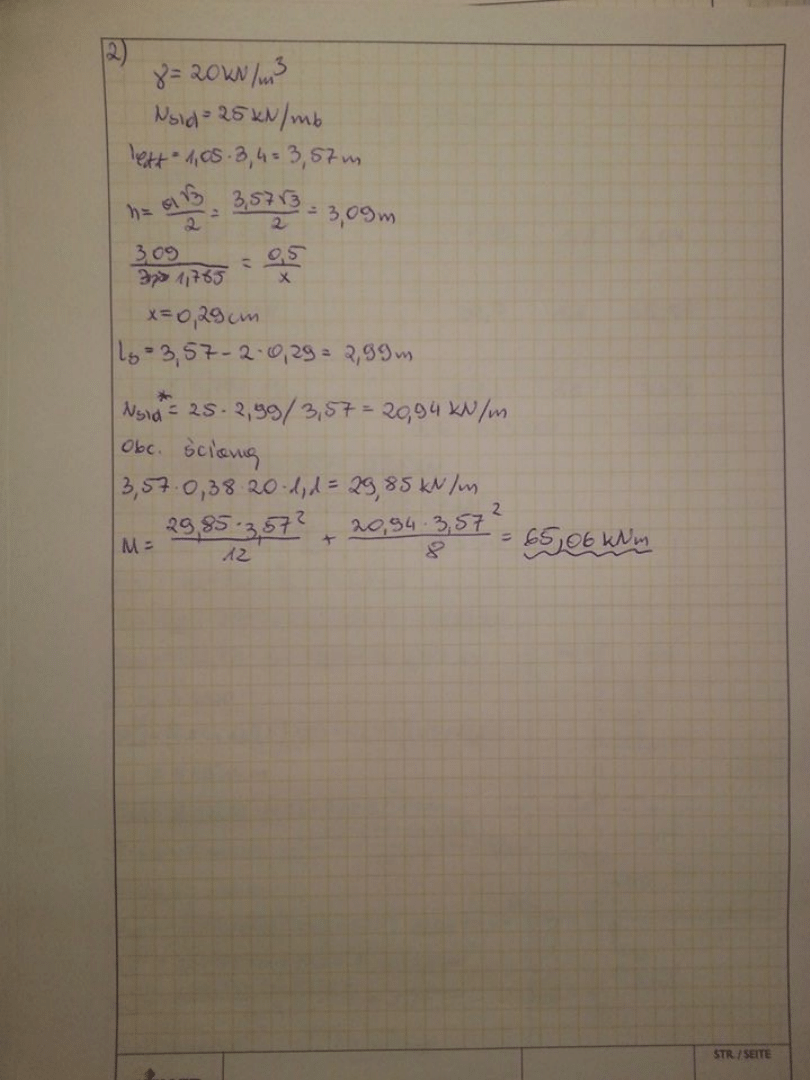 2)
γ = 20 kN/m³
Nsld = 25 kN/mb
leff = 1,05 · 3,4 = 3,57 m
h = a√3/2 = 3,57√3/2 = 3,09 m
3,09/1,785 = 0,5/x
x = 0,29 cm
lo = 3,57 - 2 · 0,29 = 2,99 m
Nsld* = 25 · 2,99 / 3,57 = 20,94 kN/m
Obc. ściany
3,57 · 0,38 · 20 · 1,1 = 29,85 kN/m
M = 29,85 · 3,57²/12 + 20,94 · 3,57²/8 = 65,06 kNm
STR. / SEITE